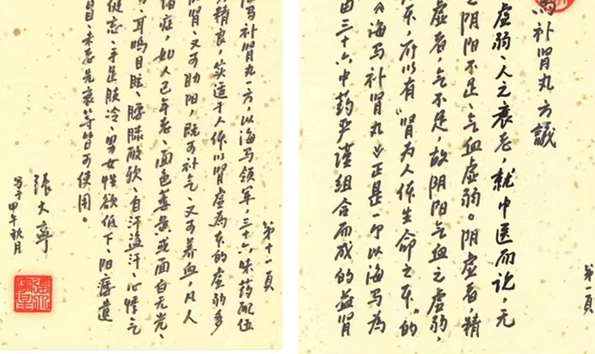 第一頁
馬补肾丸方議
虚弱、人之衰老,就中医而论,无
阴阳不足、气血虚弱。阴虚者,精
虚者,气不足,故阴阳气血之虚弱,
本,所以有"肾为人体生命之本"的
《海马补肾丸》正是一个以海马为
由三十六中药严谨组合而成的益肾
第十一頁
马补肾丸一方,以海马领军,三十六味药配伍
精良,实适于人体以肾虚为本的虚弱多
肾,又可助阳,既可补气、又可养血,凡人
诸症,如人已年老、面色萎黄或面白无光、
耳鸣目眩、腰膝酸软、自汗盗汗、心悸气
健忘、手足肢冷、男女性欲低下、阳痿遗
目、未老先衰等皆可使用。
張大寧
写于甲午秋月